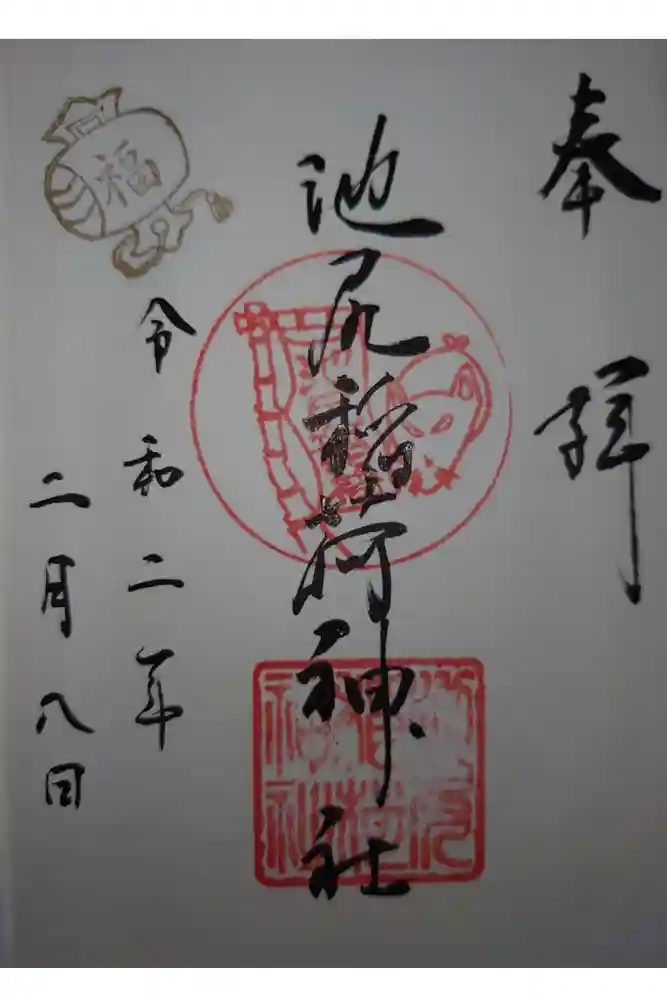 奉拝
池尻稲荷神社
令和二年
二月八日
福